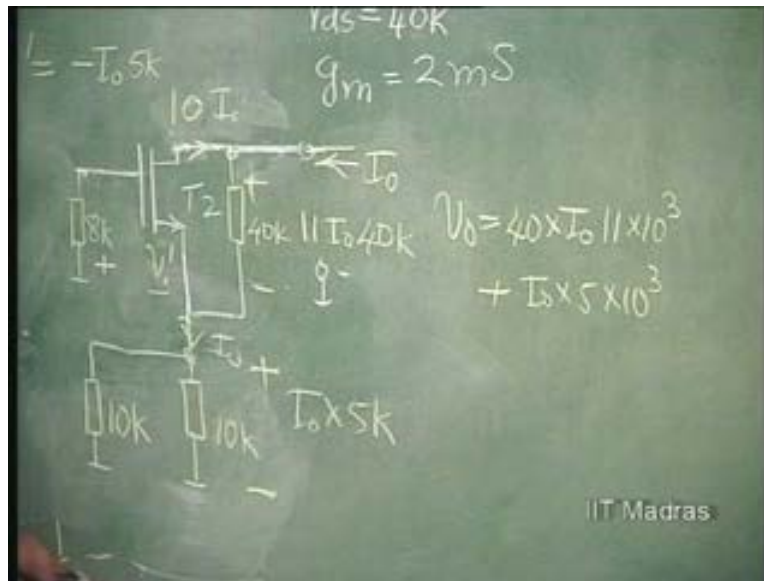 rds = 40k
= -I₀5k
gm = 2mS
10 I₀
I₀
T2
8k
+
40k
+
11 I₀ 40k
-
V₀ = 40 × I₀ 11 × 10³
+ I₀ × 5 × 10³
I₀
+
10k
10k
I₀ × 5k
-
IIT Madras